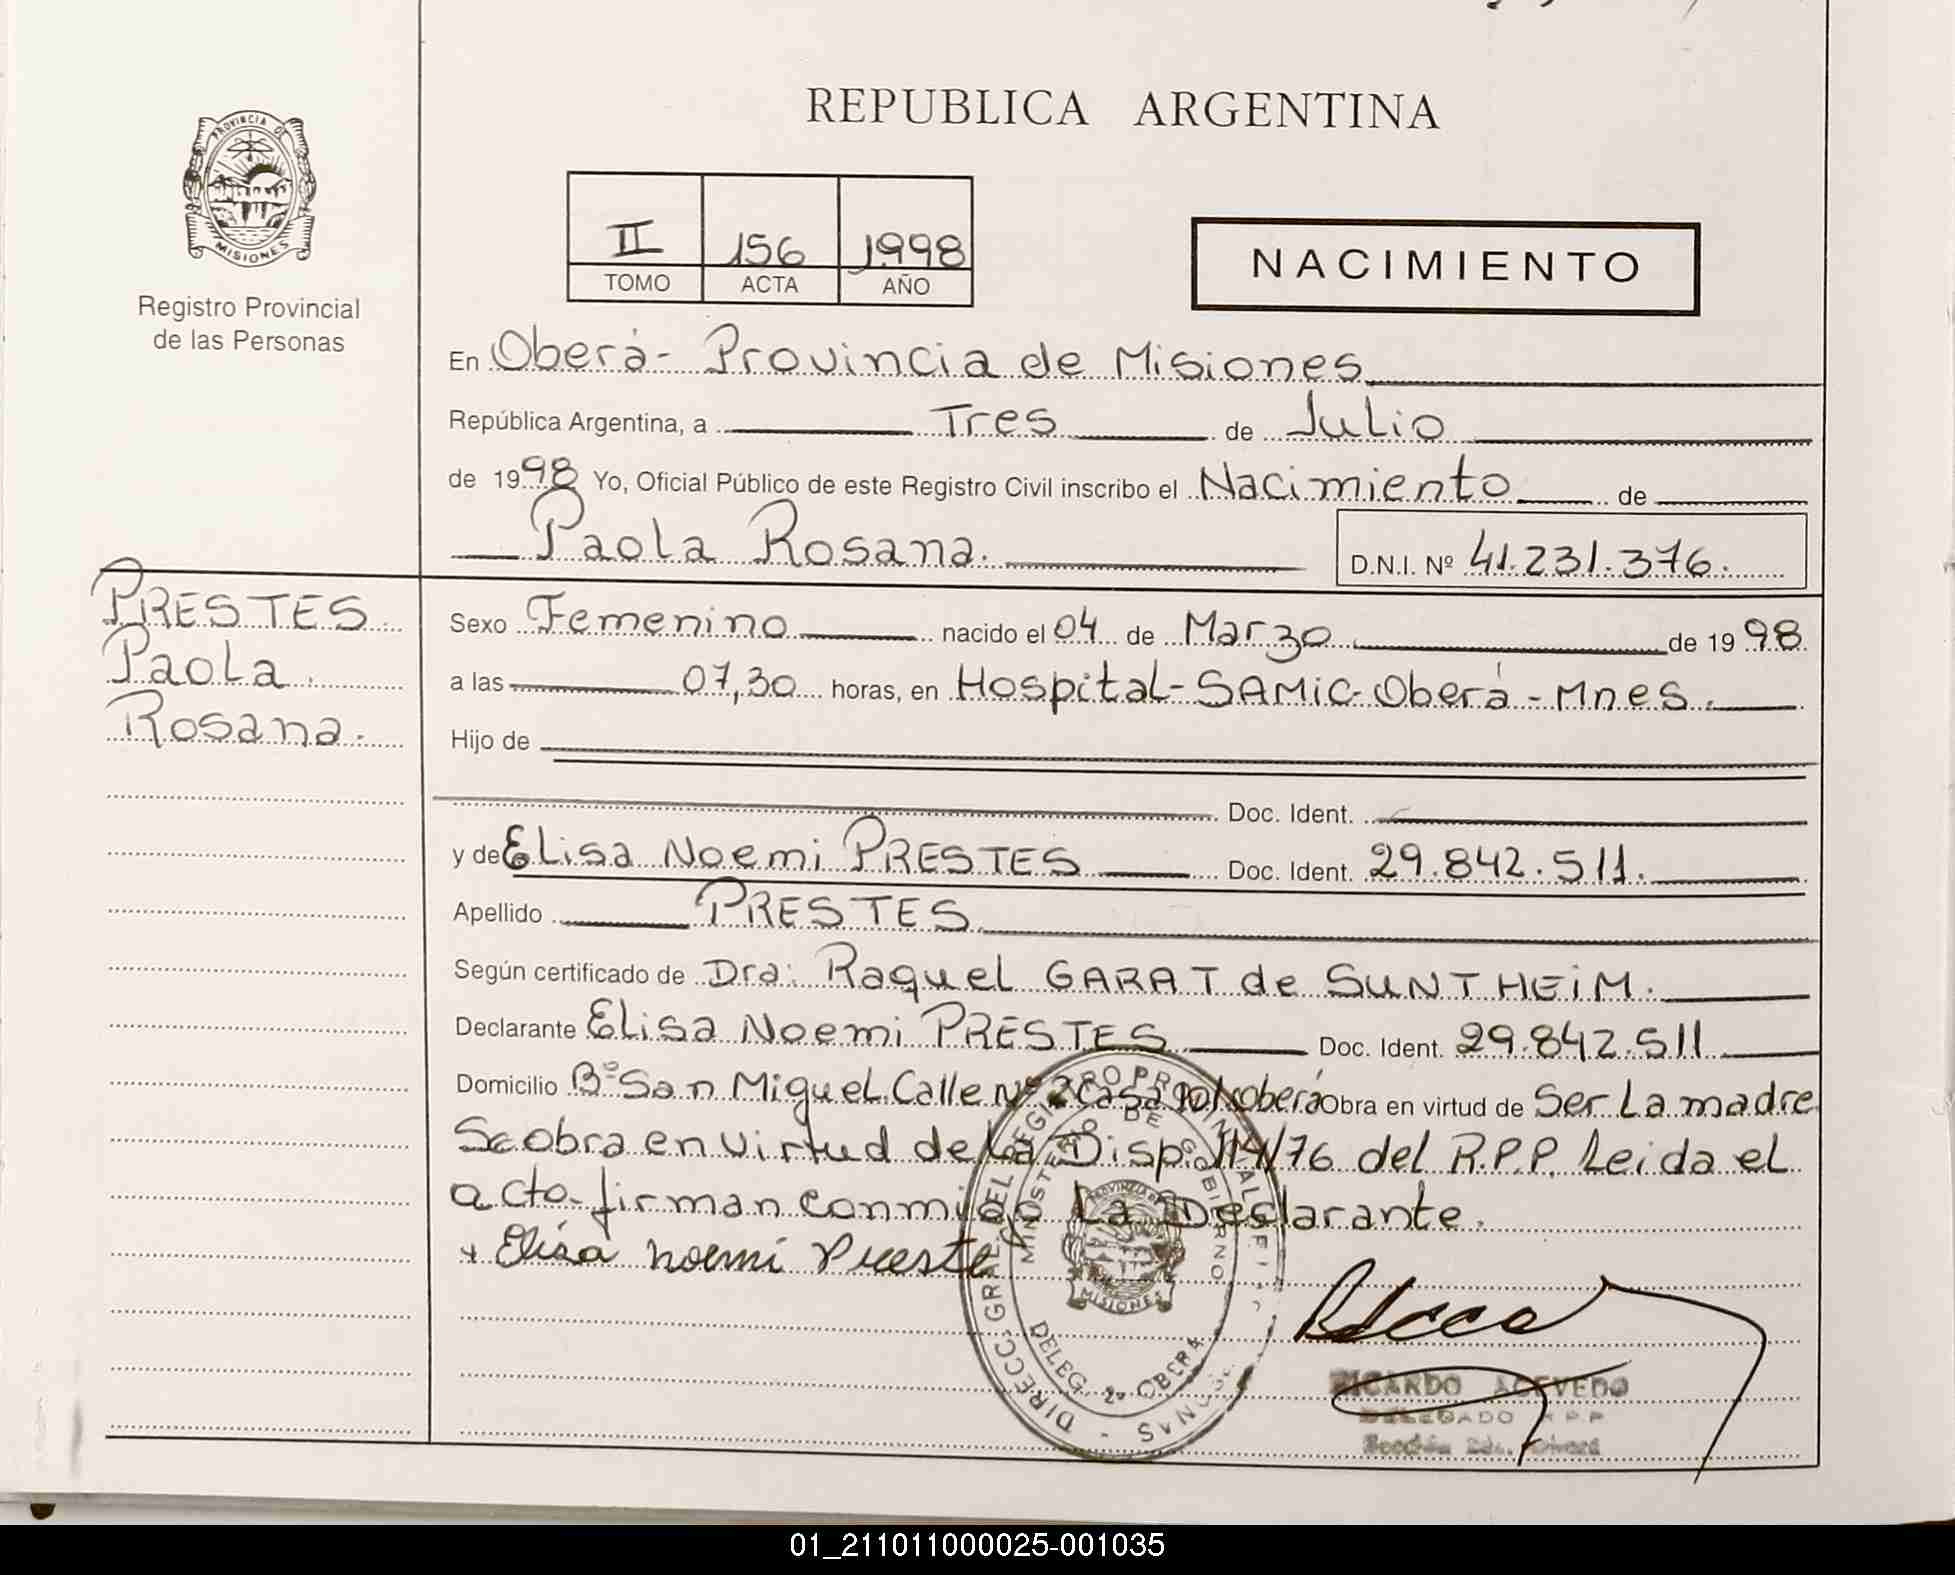 REPUBLICA ARGENTINA
PROVINCIA DE
MISIONES
Registro Provincial
de las Personas
II 156 1998
TOMO ACTA AÑO
NACIMIENTO
En Oberá - Provincia de Misiones
República Argentina, a Tres de Julio
de 1998 Yo, Oficial Público de este Registro Civil inscribo el Nacimiento de
Paola Rosana.
D.N.I. Nº 41.231.376.
PRESTES
Paola
Rosana.
Sexo Femenino nacido el 04 de Marzo de 1998
a las 07,30 horas, en Hospital - SAMIC - Oberá - Mnes.
Hijo de
Doc. Ident.
y de Elisa Noemi PRESTES Doc. Ident. 29.842.511.
Apellido PRESTES
Según certificado de Dra: Raquel GARAT de SUNTHEIM.
Declarante Elisa Noemi PRESTES Doc. Ident. 29.842.511
Domicilio Bº San Miguel Calle Nº 2 Casa Oberá Obra en virtud de Ser La madre
Se obra en virtud de La Disp. 114/76 del R.P.P. Leida el
acto firman conmigo La Declarante.
x Elisa noemi Preste
DIRECC. GRAL. DEL REGISTRO PROVINCIAL
MINISTERIO DE GOBIERNO
PROVINCIA DE
MISIONES
DELEG. 2ª OBERA
RICARDO ACEVEDO
DELEGADO R P P
01_211011000025-001035